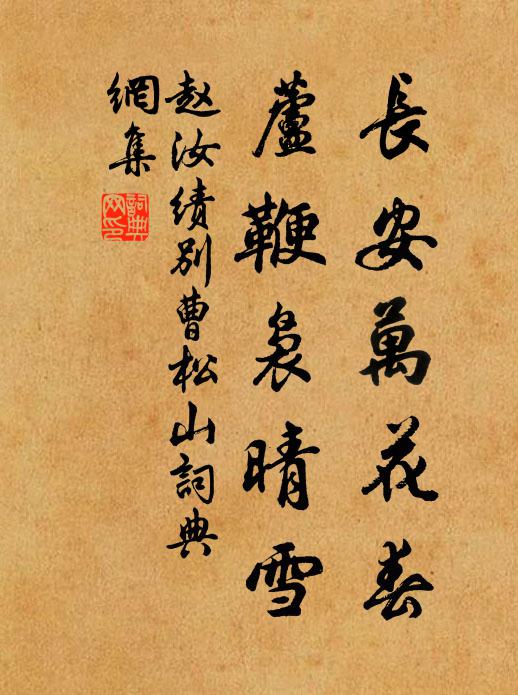 長安萬花春
蘆鞭裊晴雪
赵汝績别曹松山詞典
網集
詞典网印